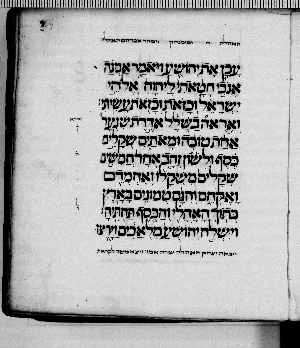 עכן את יהושע ויאמר אמנה
אנכי חטאתי ליהוה אלהי
ישראל וכזאת וכזאת עשיתי
ואראה בשלל אדרת שנער
אחת טובה ומאתים שקלים
כסף ולשון זהב אחד חמשים
שקלים משקלו ואחמדם
ואקחם והנם טמונים בארץ
בתוך האהלי והכסף תחתיה
וישלח יהושע מלאכים וירצו
ויבאה יצחק האהלה שרה אמו ויצא משה לקראת